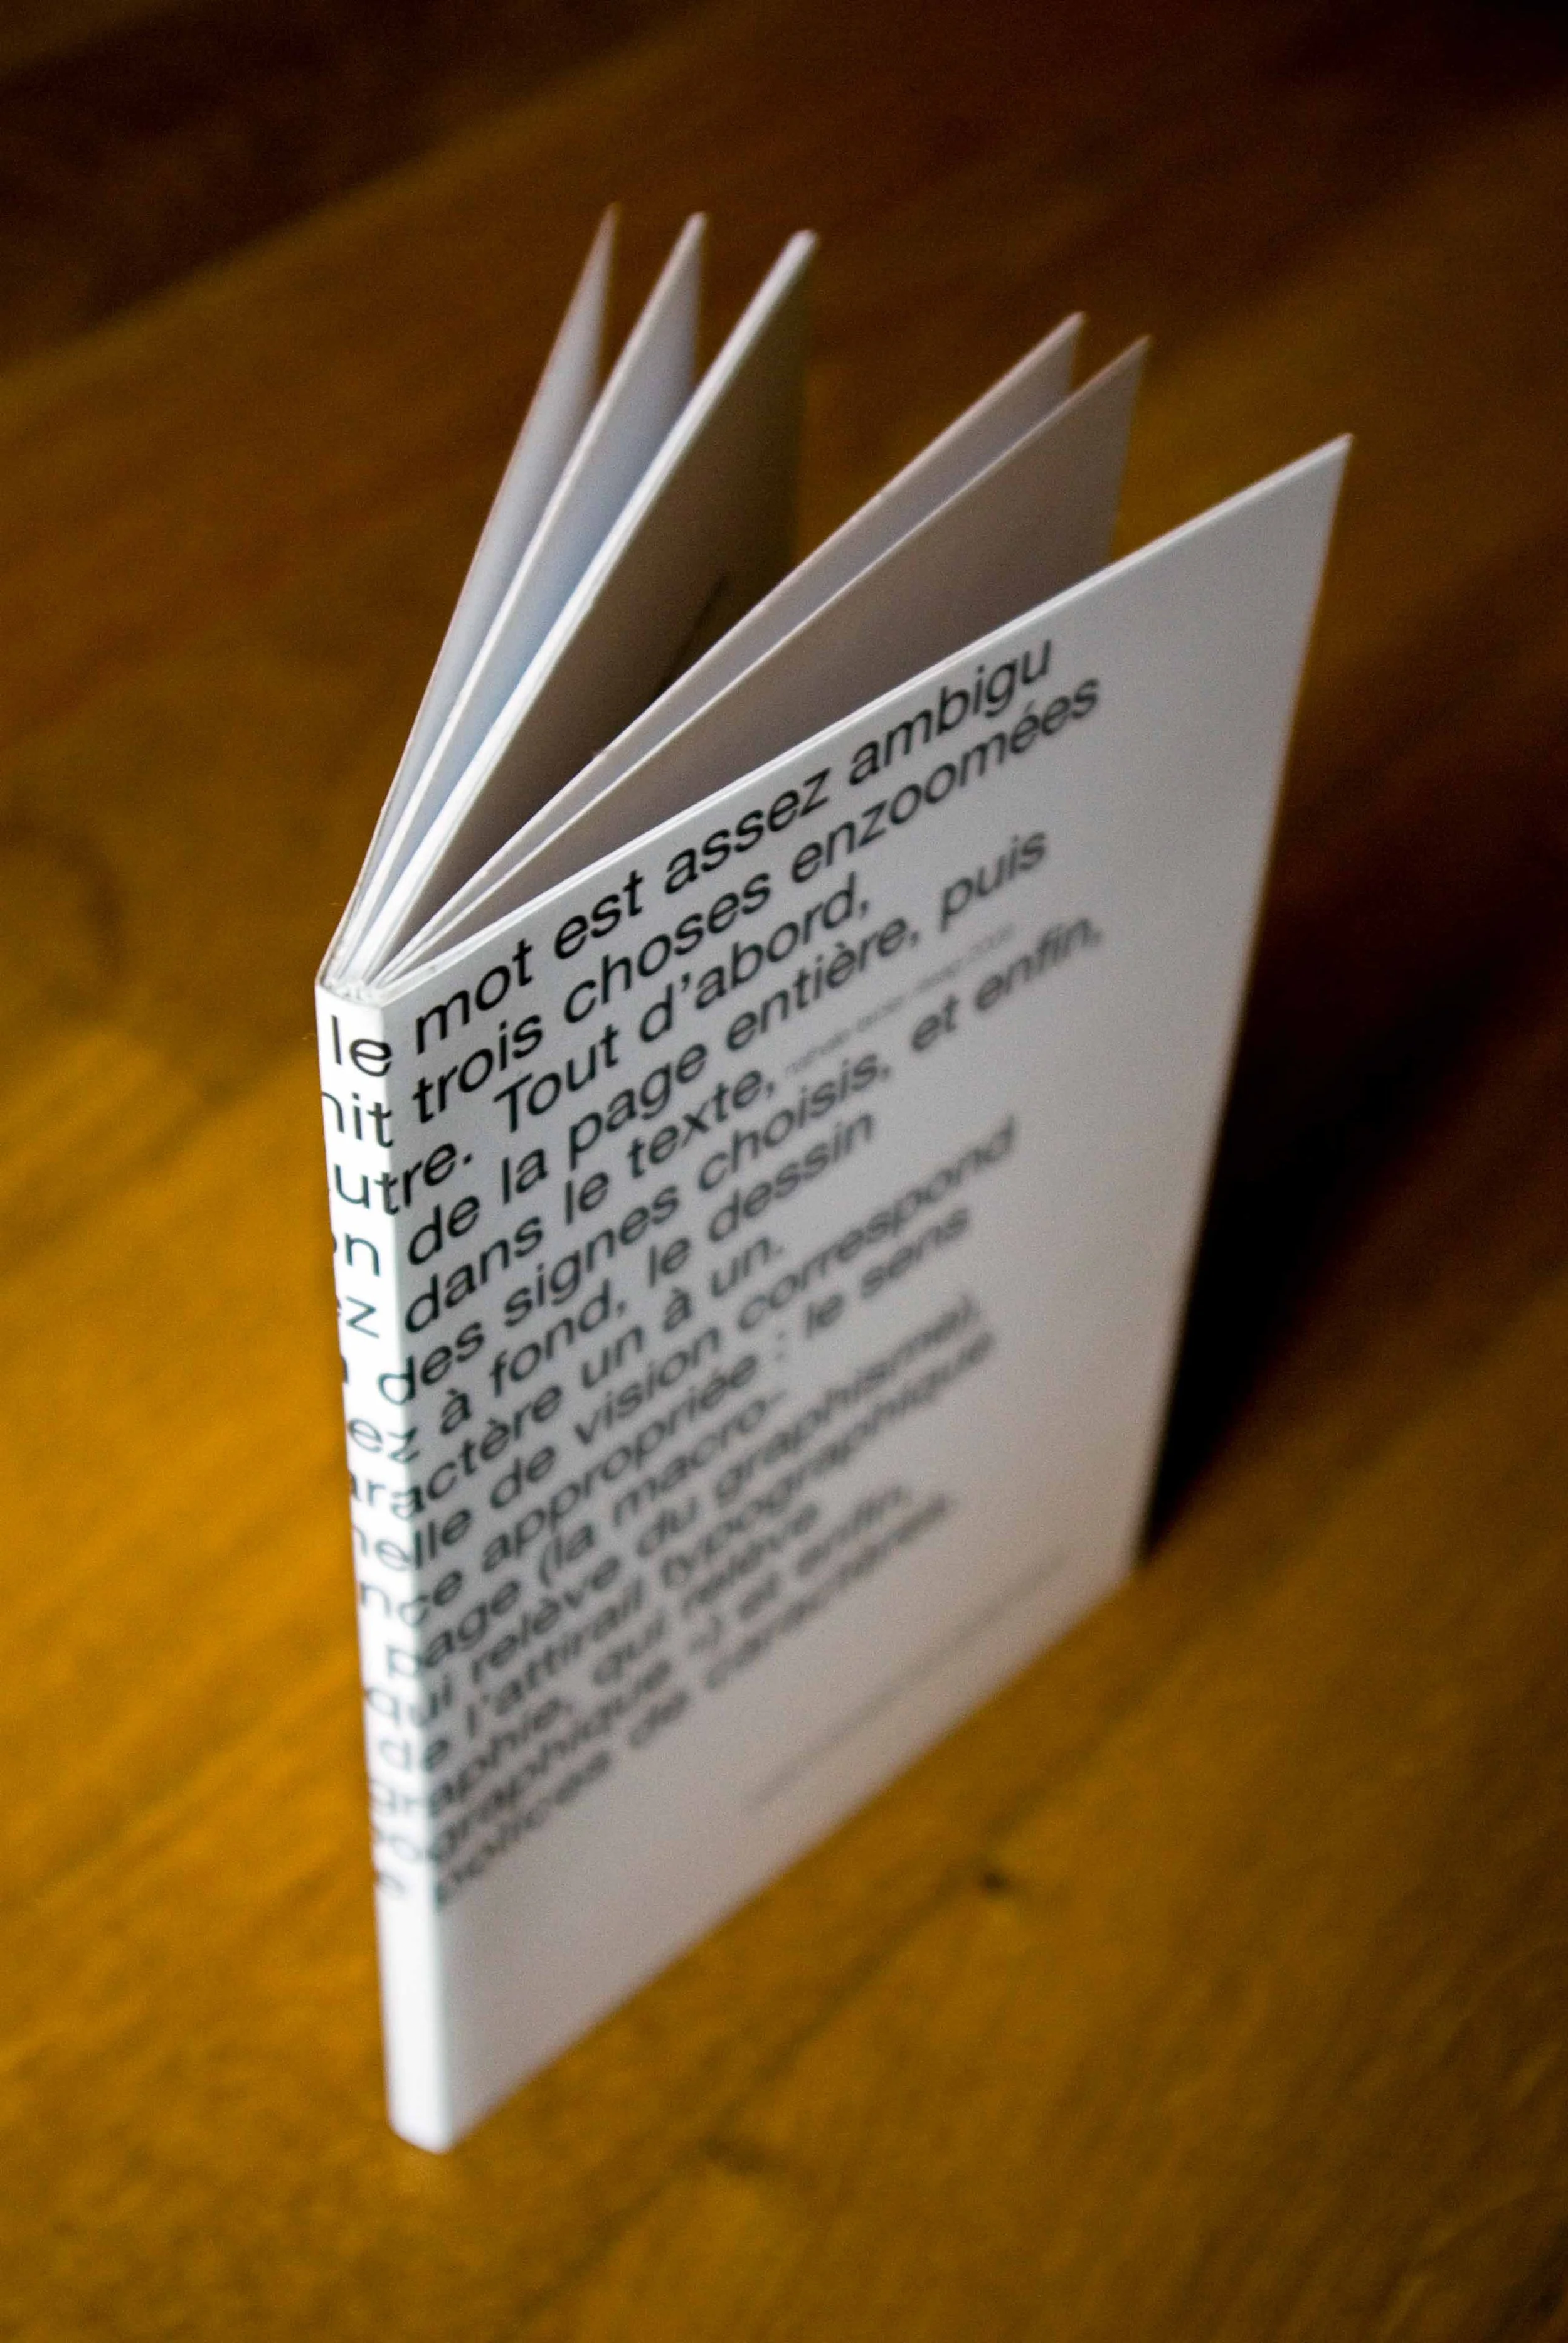 le mot est assez ambigu
nit trois choses enzoomées
utre. Tout d'abord,
on de la page entière, puis
ez dans le texte,
des signes choisis, et enfin,
ez à fond, le dessin
aractère un à un.
nelle de vision correspond
nce appropriée : le sens
page (la macro-
qui relève du graphisme),
de l'attirail typographique
graphie, qui relève
ographique –) et enfin,
polices de caractères.